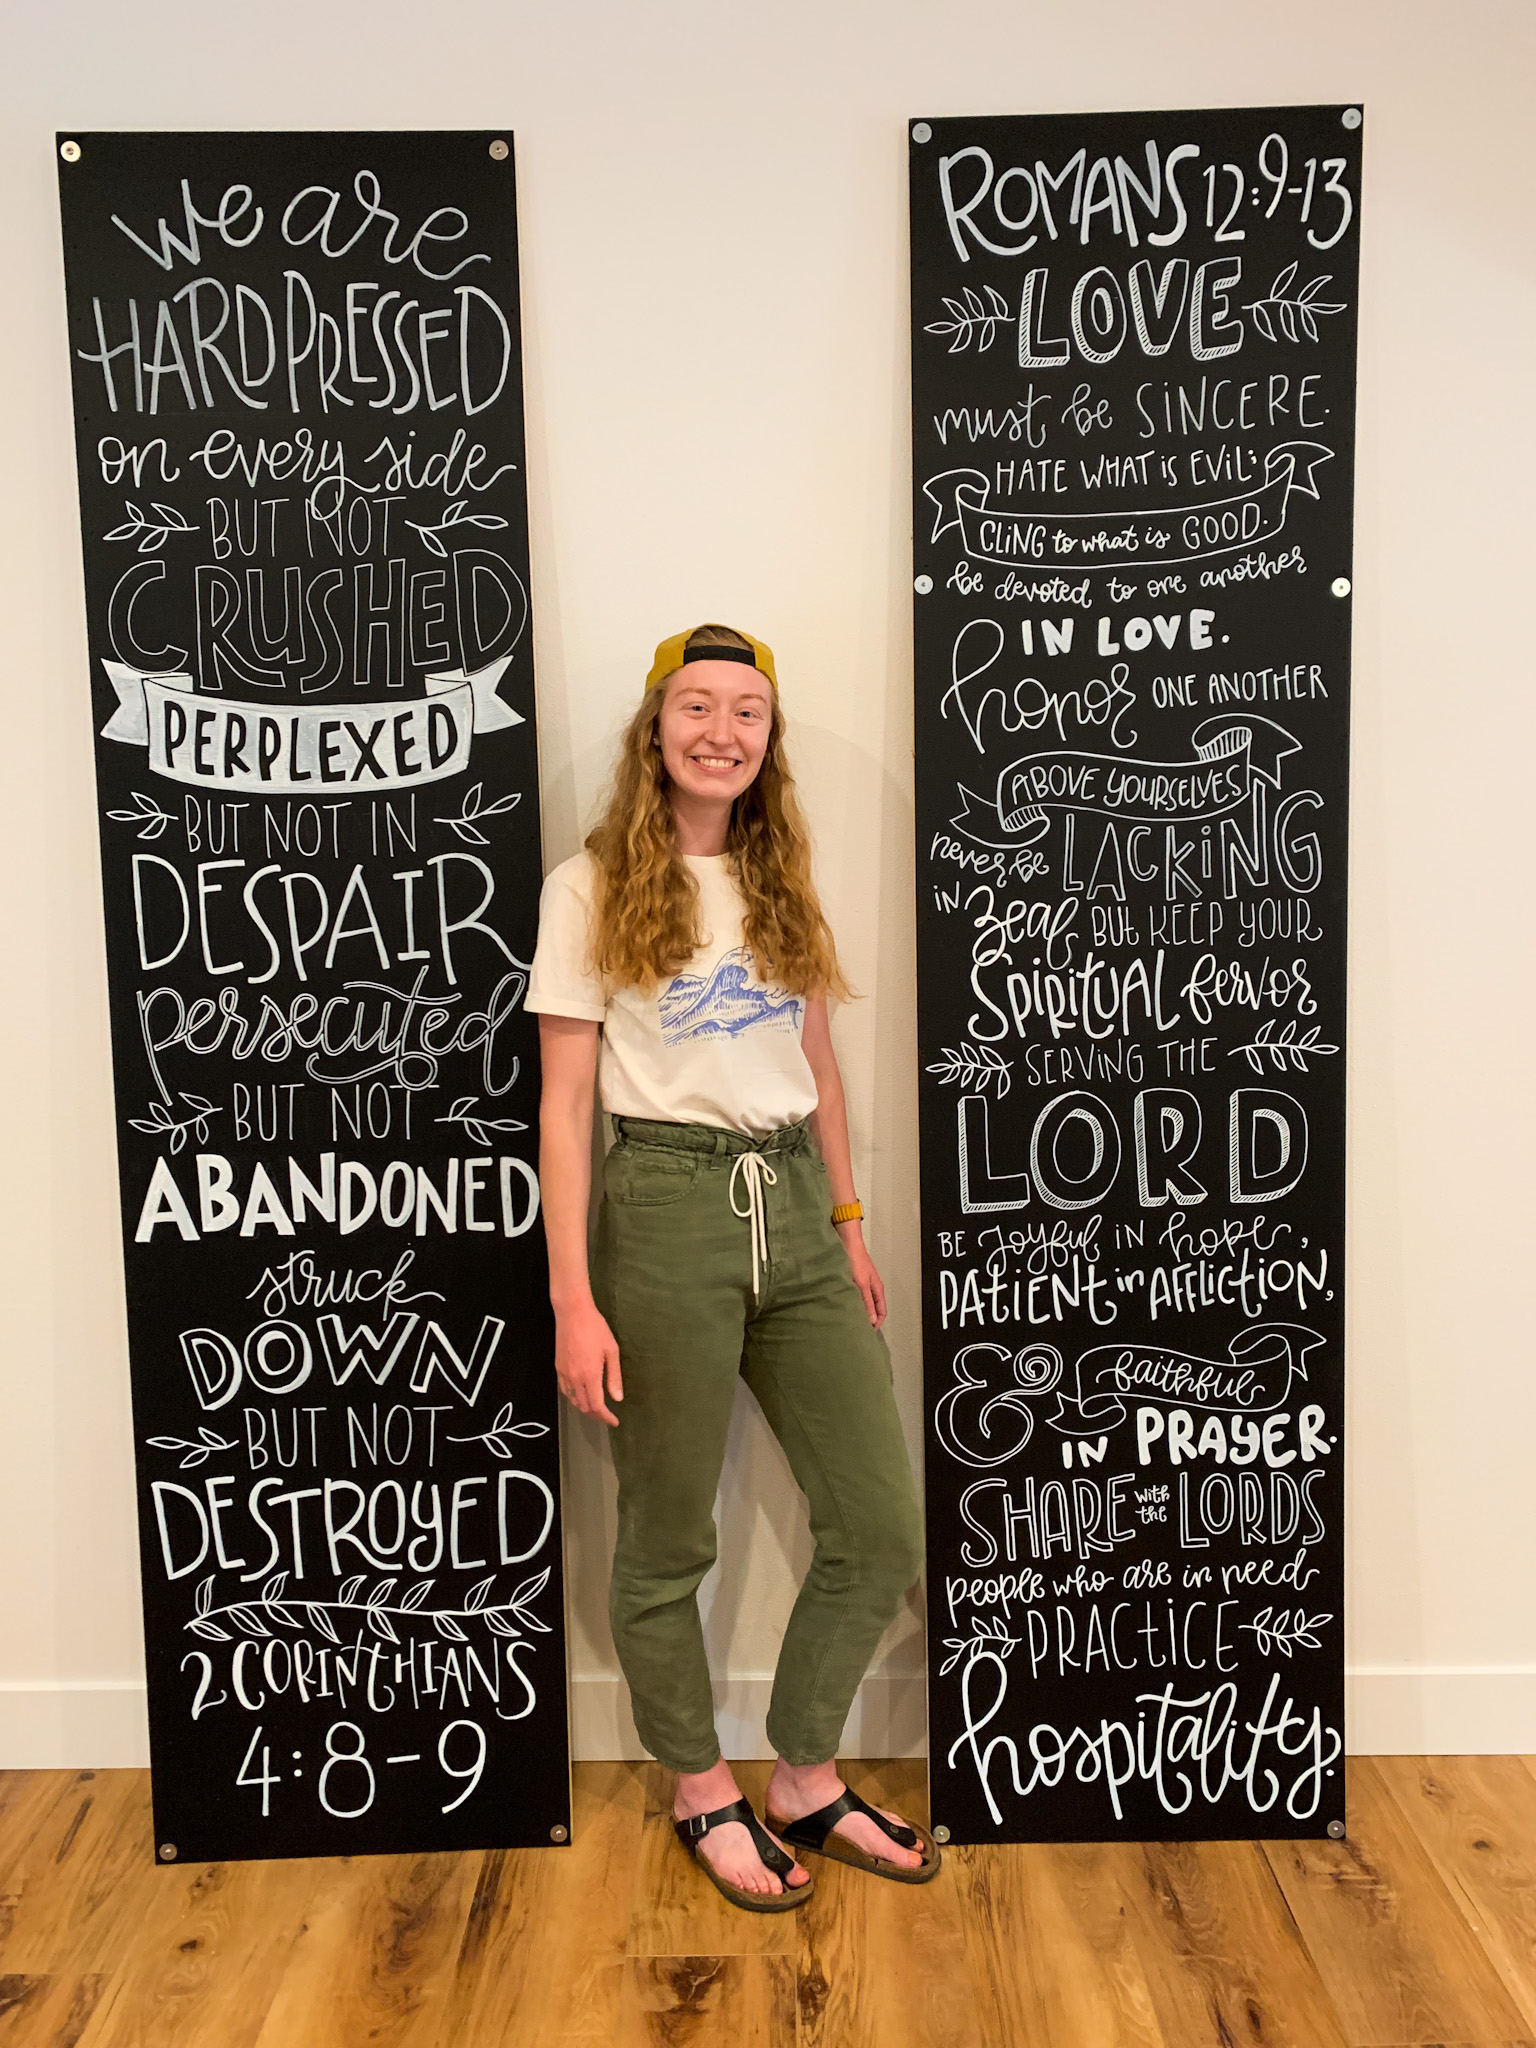 we are
HARD PRESSED
on every side
BUT NOT
CRUSHED
PERPLEXED
BUT NOT IN
DESPAIR
persecuted
BUT NOT
ABANDONED
struck
DOWN
BUT NOT
DESTROYED
2 CORINTHIANS
4:8-9
ROMANS 12:9-13
LOVE
must be SINCERE.
HATE WHAT is EViL;
CLiNG to what is GOOD.
be devoted to one another
IN LOVE.
honor ONE ANOTHER
ABOVE YOURSELVES
never be LACKiNG
iN zeal BUt KEEP YOUR
SPiRitUAL fervor
SERViNG THE
LORD
BE joyful IN hope,
PAtiENt in AFFLiCtiON,
& faithful
IN PRAYER.
SHARE with the LORDS
people who are in need
PRACtiCE
hospitality.